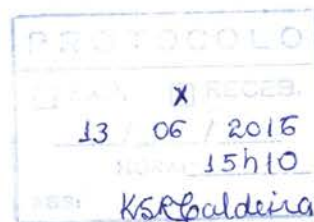 PROTOCOLO
☐ EXP. ☒ RECEB.
13 / 06 / 2016
HORA: 15h10
ASS: KSRCaldeira